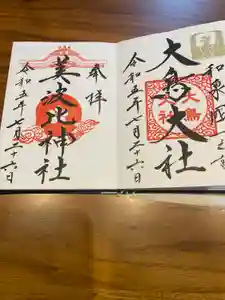 和泉國一宮
大鳥大社
大鳥大社
令和五年七月二十六日
奉拝
美波比神社
令和五年七月二十六日